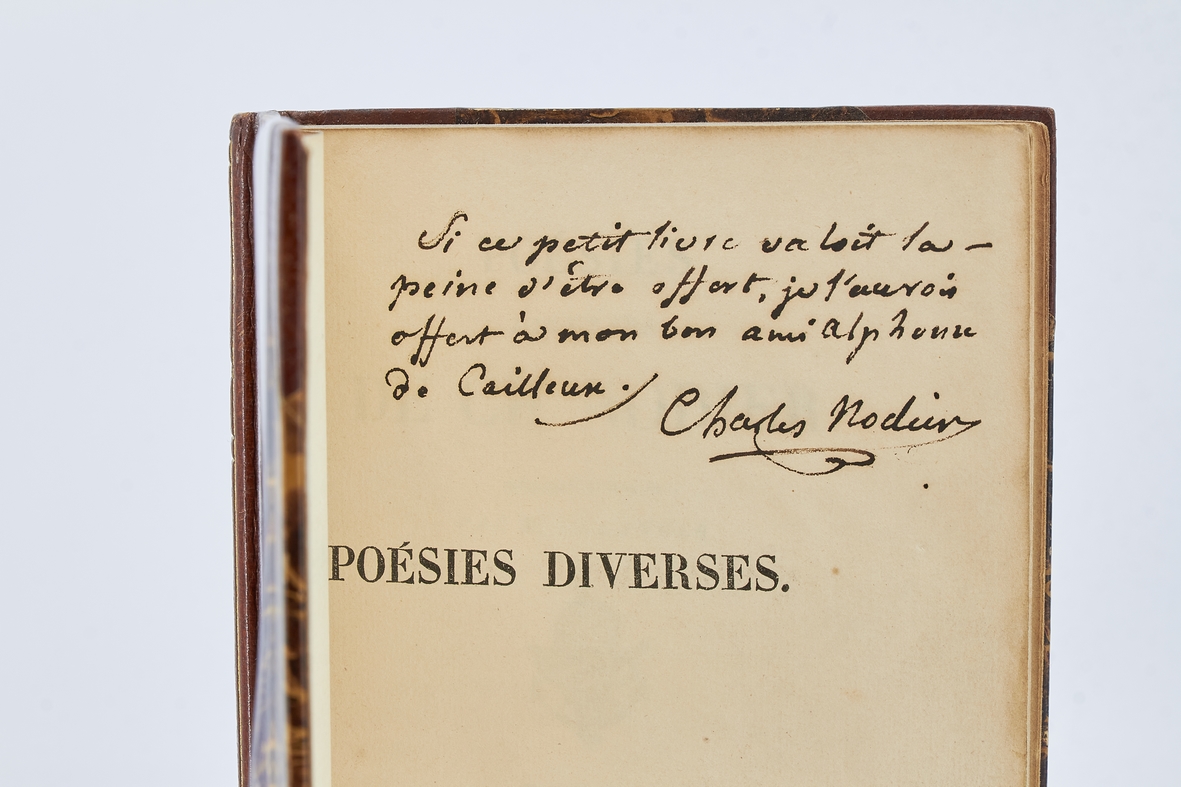 Si ce petit livre valoit la
peine d'être offert, je l'aurois
offert à mon bon ami Alphonse
de Cailleux.
Charles Nodier
POÉSIES DIVERSES.